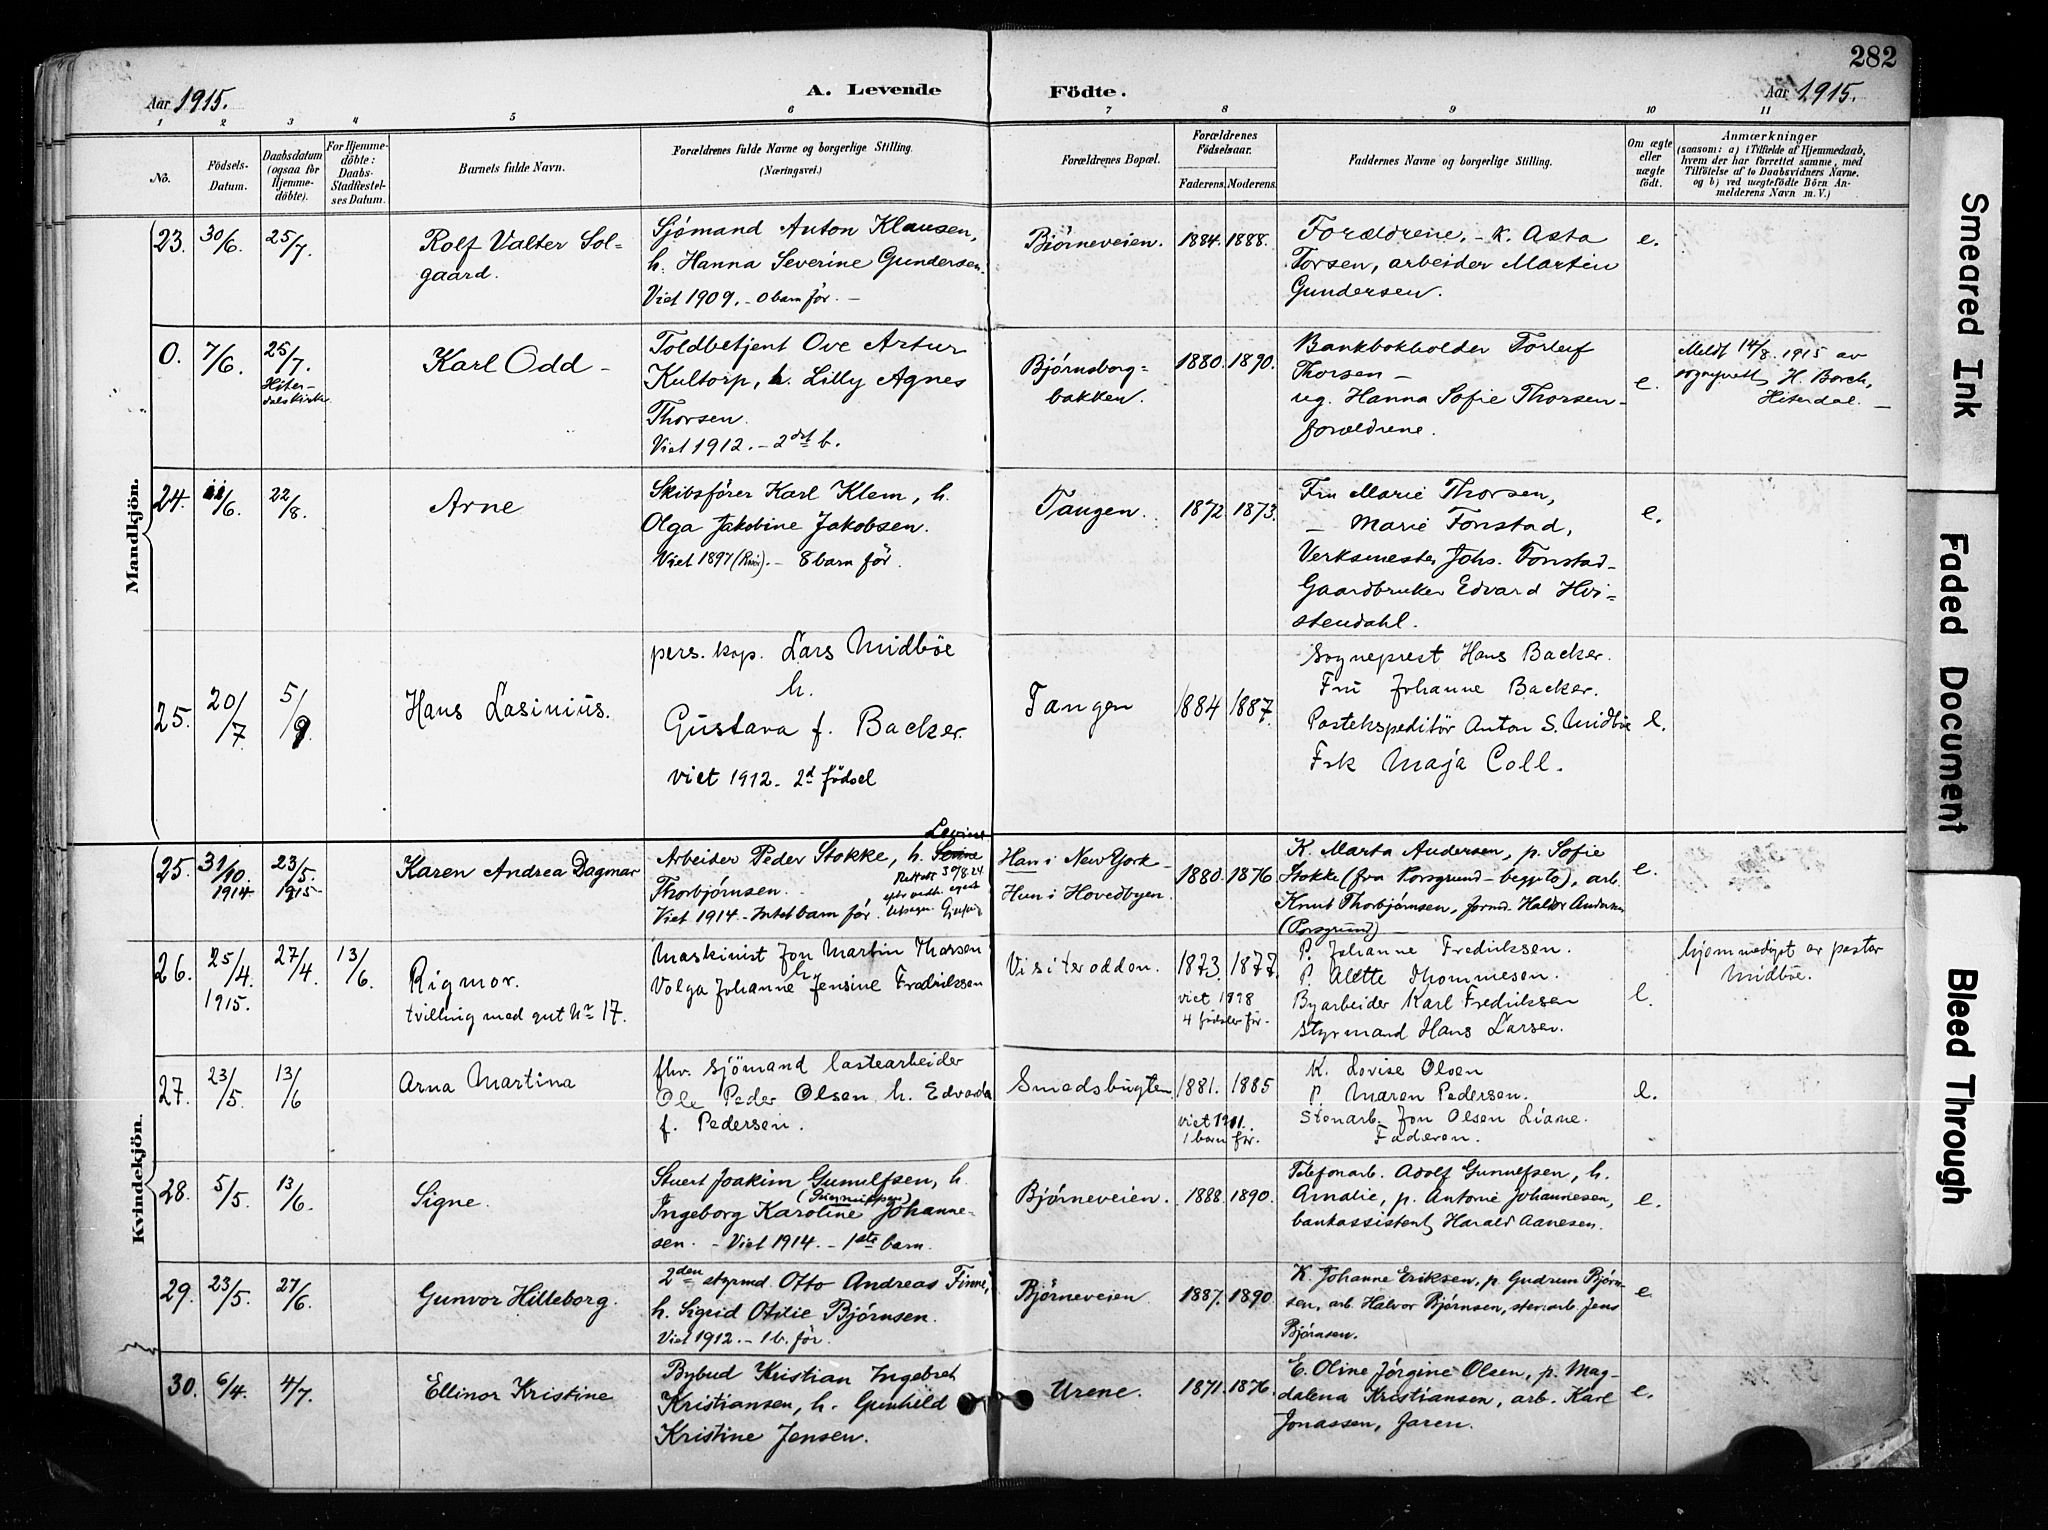 282
Aar 1915.
A. Levende Födte.
Aar 1915.
1 2 3 4 5 6 7 8 9 10 11
No.
Födsels-
Datum.
Daabsdatum
(ogsaa for
Hjemme-
döbte).
For Hjemme-
döbte:
Daabs-
Stadfæstel-
ses Datum.
Barnets fulde Navn.
Forældrenes fulde Navne og borgerlige Stilling.
(Næringsvei.)
Forældrenes Bopæl.
Forældrenes
Födselsaar.
Faderens. Moderens.
Faddernes Navne og borgerlige Stilling.
Om ægte
eller
uægte
födt.
Anmærkninger
(saasom: a) i Tilfælde af Hjemmedaab,
hvem der har forrettet samme, med
Tilföielse af to Daabsvidners Navne.
og b) ved uegtefödte Börn An-
melderens Navn m. V.)
Mandkjön.
23. 30/6. 25/7.
Rolf Valter Sol=
gaard.
Sjømand Anton Klausen,
h. Hanna Severine Gundersen.
Viet 1909. - 0 barn før. -
Bjørneveien.
1884. 1888.
Forældrene. - K. Asta
Torsen, arbeider Martin
Gundersen.
e.
0. 7/6. 25/7.
Hiter-
dals kirke
Karl Odd -
Toldbetjent Ove Artur
Kultorp, h. Lilly Agnes
Thorsen.
Viet 1912. - 2det b.
Bjørnsborg=
bakken.
1880. 1890.
Bankbokholder Torleif
Thorsen -
ug. Hanna Sofie Thorsen -
forældrene.
e.
Meldt 14/8. 1915 av
sogneprest H. Borch,
Hiterdal. -
24. 11/6. 22/8.
Arne
Skibsfører Karl Klem, h.
Olga Jakobine Jakobsen.
Viet 1897 (Risør). - 8 barn før.
Tangen.
1872. 1873.
Fru Marie Thorsen,
- Marie Fonstad,
Verksmester Johs. Fonstad -
Gaardbruker Edvard Hvi=
stendahl.
e.
25. 20/7 5/9.
Hans Lasinius.
pers. kap. Lars Midböe
h.
Gustava f. Backer.
viet 1912. 2d födsel
Tangen
1884 1887.
Sogneprest Hans Backer.
Fru Johanne Backer.
Postekspeditör Anton S. Midböe
Frk Maja Coll.
e.
Kvindekjön.
25. 31/10. 1914 23/5. 1915
Karen Andrea Dagmar
Arbeider Peder Stokke, h.
Thorbjørnsen.
Viet 1914. - Intet barn før.
Rettet 30/8.24
Han i New York -
Hun i Hovedbyen.
1880. 1876
K. Marta Andersen, p. Sofie
Stokke (fra Porsgrund - begge to), arb.
Knut Thorbjørnsen, formd. Halvor Andersen
(Porsgrund) -
e.
26. 25/4. 1915. 27/4. 13/6.
Rigmor.
tvilling med gut No 17.
Maskinist Jon Martin Thorsen
h.
Volga Johanne Jensine Fredriksen
Visiterodden.
1873 1877.
viet 1898
4 födsler för.
P. Johanne Fredriksen.
P. Alette Thommesen.
Byarbeider Karl Fredriksen
Styrmand Hans Larsen.
e.
hjemmedöpt av pastor
Midböe.
27. 23/5. 13/6
Arna Martina
fhv. sjömand lastearbeider
Ole Peder Olsen h. Edvarda
f. Pedersen.
Smedsbugten
1881. 1885
viet 1911.
1 barn för.
K. Lovise Olsen
P. Maren Pedersen.
Stenarb. Jon Olsen Liane.
Faderen.
e.
28. 5/5. 13/6.
Signe.
Stuert Joakim Gunulfsen, h.
Ingeborg Karoline Johanne-
sen. - Viet 1914. - 1ste barn.
Bjørneveien.
1888. 1890.
Telefonarb. Adolf Gunulfsen, h.
Amalie, p. Antonie Johannesen,
bankassistent Harald Aanesen.
e.
29. 23/5. 27/6.
Gunvor Hilleborg.
2den styrmd. Otto Andreas Finne,
h. Sigrid Otilie Bjørnsen.
Viet 1912. - 1 b. før.
Bjørneveien
1887. 1890
K. Johanne Eriksen, p. Gudrun Bjørn-
sen, arb. Halvor Bjørnsen, stenarb. Jens
Bjørnsen.
e
30. 6/4. 4/7.
Ellinor Kristine
Bybud Kristian Ingebret
Kristiansen, h. Gunhild
Kristine Jensen.
Urene.
1871. 1876.
E. Oline Jørgine Olsen, p. Mag-
dalena Kristiansen, arb. Karl
Jonassen, faren.
e.
Smeared Ink
Faded Document
Bleed Through